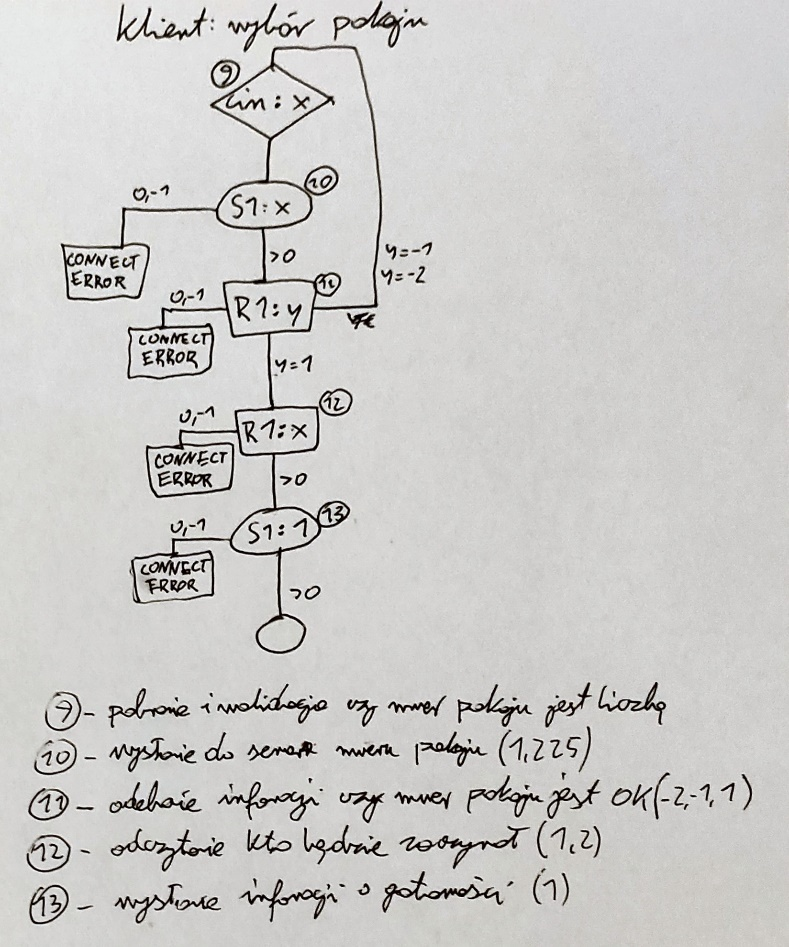 Klient: wybór pokoju
9
cin: x
10
0,-1
S1: x
CONNECT
ERROR
>0
y=-1
y=-2
11
0,-1
R1: y
CONNECT
ERROR
y=1
12
0,-1
R1: x
CONNECT
ERROR
>0
13
0,-1
S1: 1
CONNECT
ERROR
>0
9 - pobranie i walidacja czy numer pokoju jest liczbą
10 - wysłanie do serwera numeru pokoju (1,225)
11 - odebranie informacji czy numer pokoju jest OK (-2,-1,1)
12 - odczytanie kto będzie zaczynał (1,2)
13 - wysłanie informacji o gotowości (1)